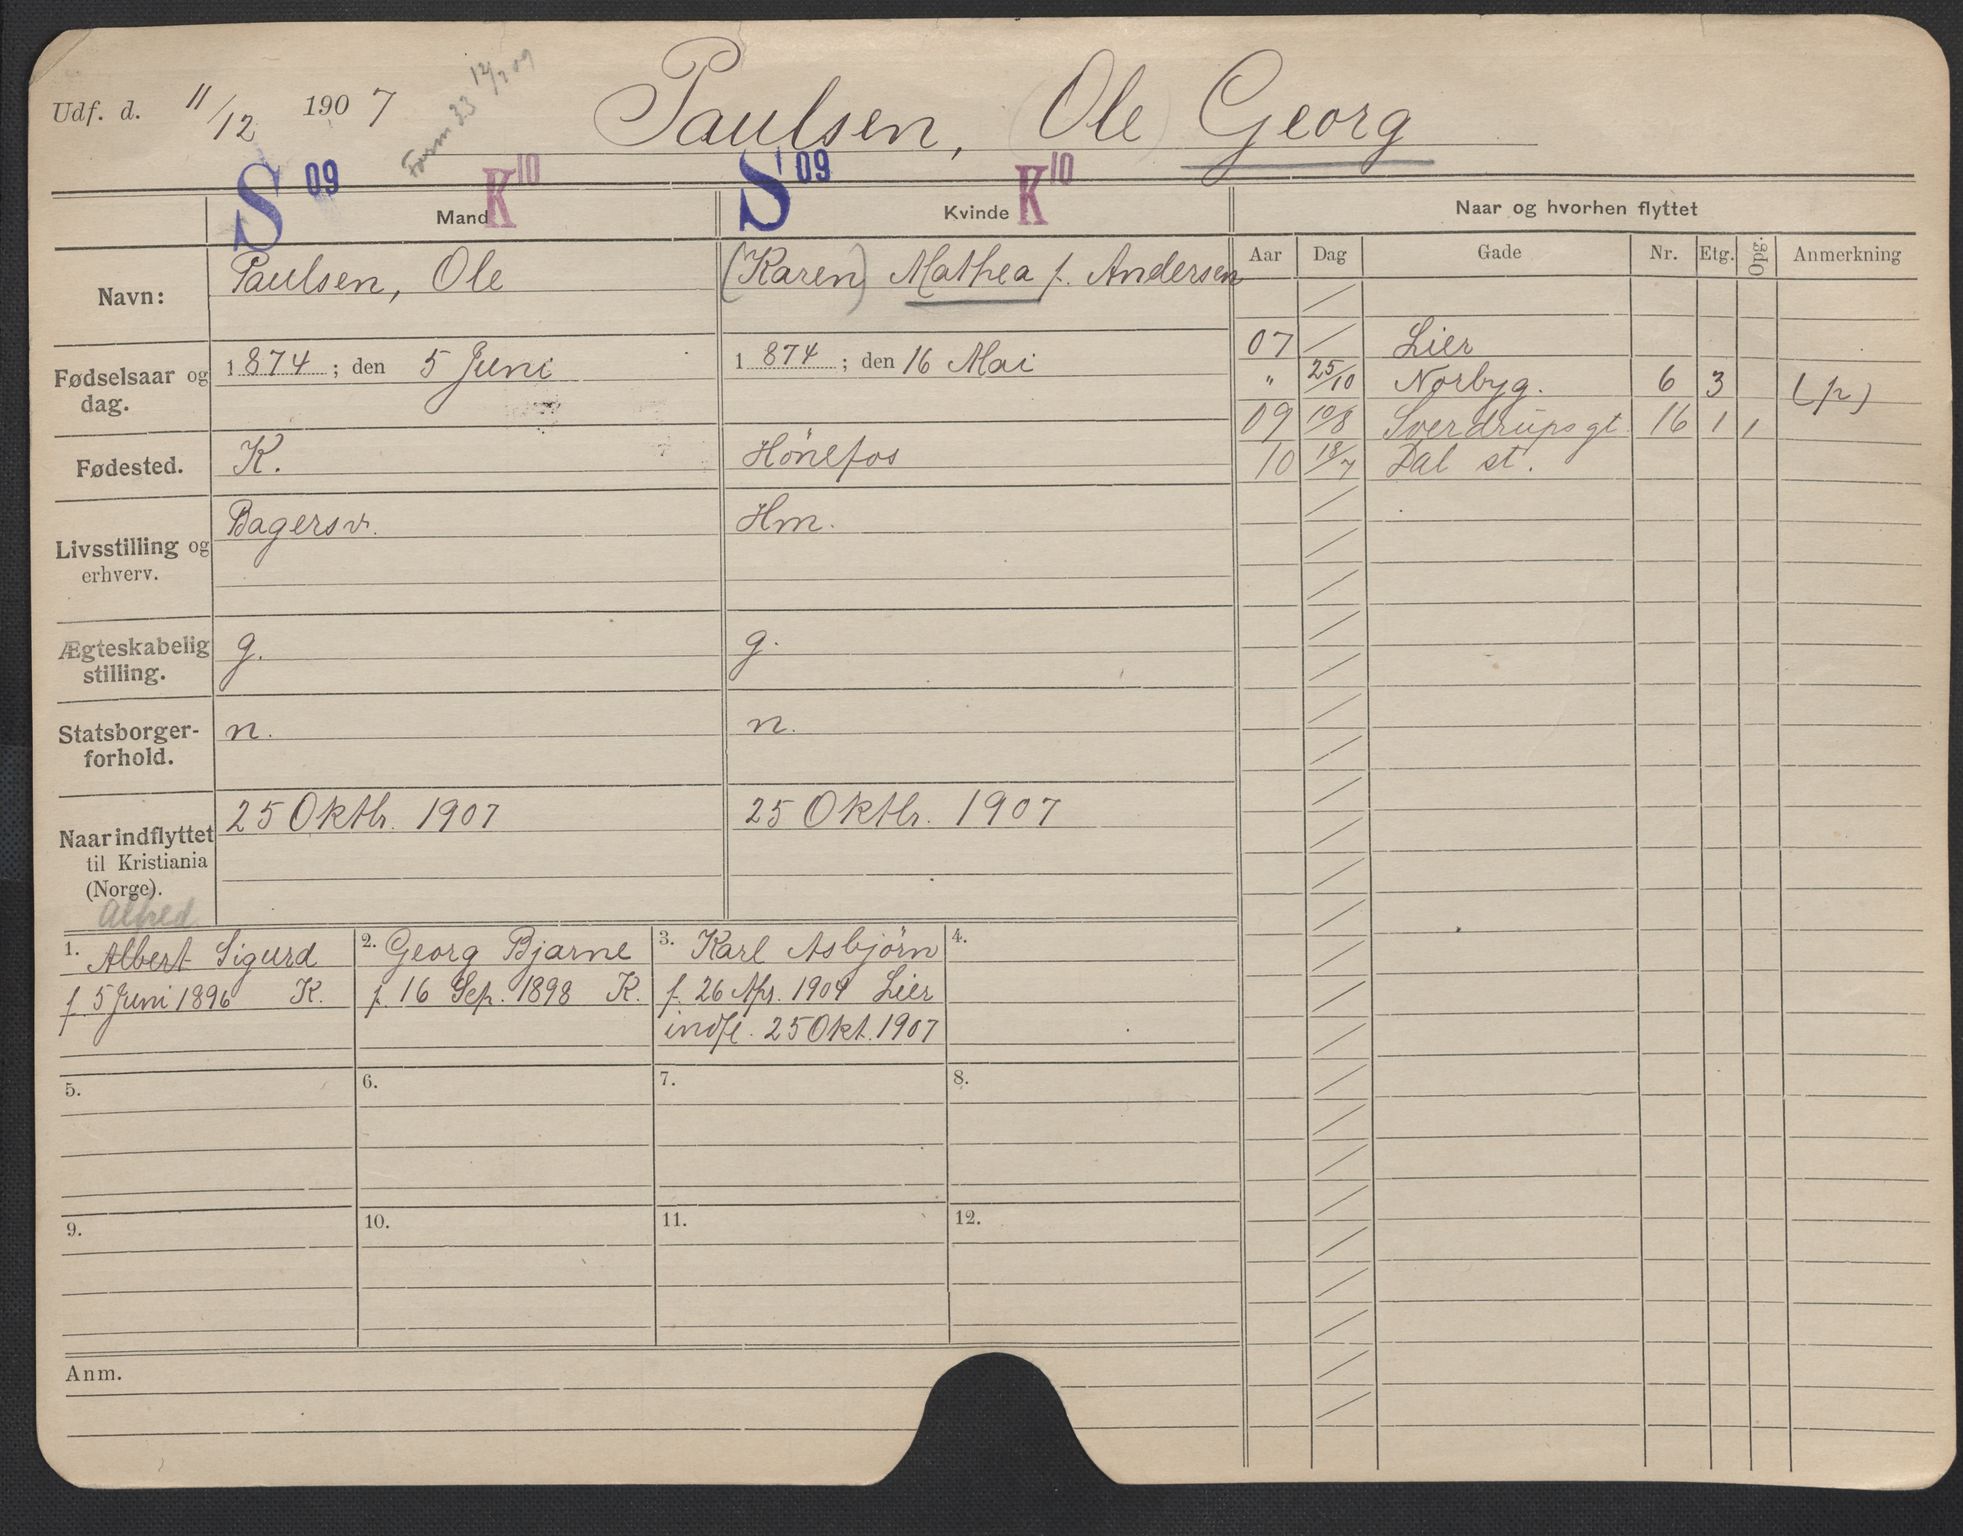 Udf. d. 11/12 1907
Form 33 12/2 09
Paulsen, (Ole) Georg
S 09 K 10 S 09 K 10
Mand Kvinde Naar og hvorhen flyttet
Aar Dag Gade Nr. Etg. Opg. Anmerkning
Navn: Paulsen, Ole (Karen) Mathea f. Andersen
07 Lier
" 25/10 Norbyg. 6 3 (p)
09 10/8 Sverdrupsgt. 16 1 1
10 18/7 Dal st.
Fødselsaar og dag. 1874; den 5 Juni 1874; den 16 Mai
Fødested. K. Hönefos
Livsstilling og erhverv. Bagersv. Hm.
Ægteskabelig stilling. g. g.
Statsborger-forhold. n. n.
Naar indflyttet til Kristiania (Norge). 25 Oktbr. 1907 25 Oktbr. 1907
Alfred
1. Albert Sigurd
f 5 Juni 1896 K.
2. Georg Bjarne
f. 16 Sep. 1898 K.
3. Karl Asbjörn
f. 26 Apr. 1904 Lier
indfl. 25 Okt. 1907
4.
5. 6. 7. 8.
9. 10. 11. 12.
Anm.